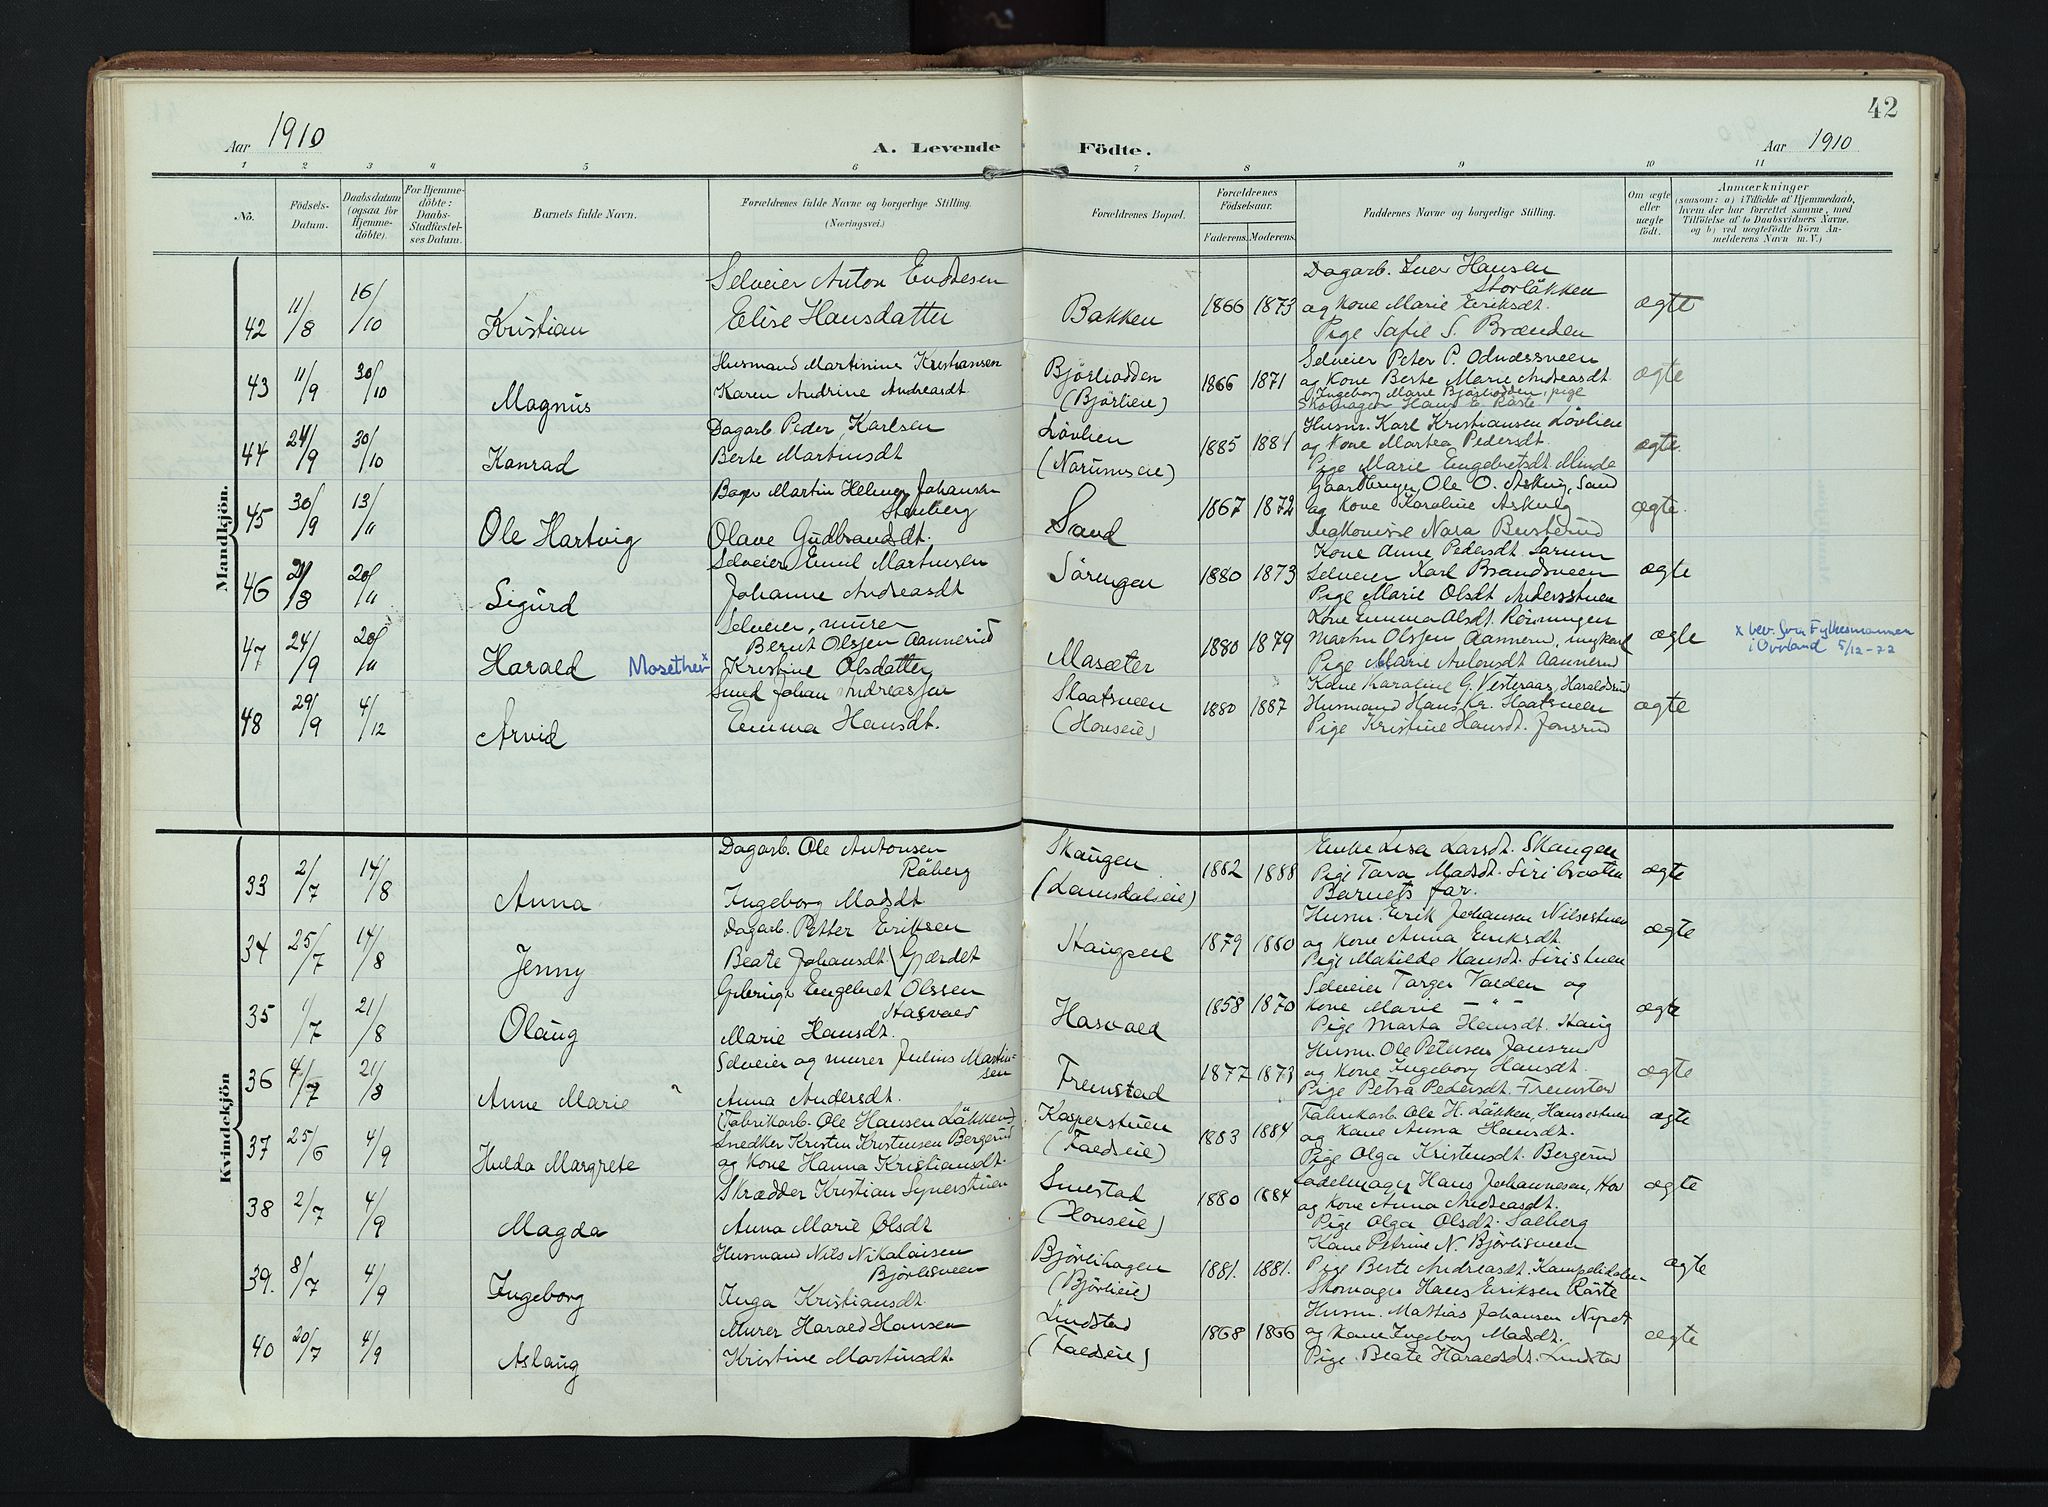 42
Aar 1910
A. Levende Födte.
Aar 1910
1 2 3 4 5 6 7 8 9 10 11
Nö.
Födsels-Datum.
Daabsdatum (ogsaa for Hjemmedöbte).
For Hjemmedöbte: Daabs-Stadfæstelses Datum.
Barnets fulde Navn.
Forældrenes fulde Navne og borgerlige Stilling.
(Næringsvei.)
Forældrenes Bopæl.
Forældrenes Födselsaar.
Faderens. Moderens.
Faddernes Navne og borgerlige Stilling.
Om ægte eller uægte födt.
Anmærkninger
(saasom: a) i Tilfælde af Hjemmedaab, hvem der har forrettet samme, med Tilföielse af to Daabsvidners Navne. og b) ved uægtefödte Börn Anmelderens Navn m. V.)
Mandkjön.
42 11/8 16/10 Kristian
Selveier Anton Endresen
Elise Hansdatter
Bakken 1866 1873
Dagarb. Iver Hansen
Storläkken
og Kone Marie Eriksdt.
Pige Safie S. Brænden
ægte
43 11/9 30/10 Magnus
Husmand Martinius Kristiansen
Karen Andrine Andreasdt.
Björliodden
(Björlieie)
1866 1871
Selveier Peter P. Odnæssveen
og Kone Berte Marie Andreasdt.
Ingeborg Marie Björliodden, pige
Skomager Hans E. Röste
ægte
44 24/9 30/10 Konrad
Dagarb. Peder Karlsen
Berte Martinsdt
Lövlien
(Narumseie)
1885 1884
Husm. Karl Kristiansen Lövlien
og Kone Martea Pedersdt.
Pige Marie Engebretsdt. Minde
ægte.
45 30/9 13/11 Ole Hartvig
Bager Martin Helmer Johansen
Stenberg
Olave Gudbrandsdt.
Sand
1867 1872
Gaardbruger Ole O. Askvig, Sand
og Kone Karoline Askvig
Diakonisse Nora Busterud
ægte.
46 21/8 20/11 Sigurd
Selveier Emil Martinsen
Johanne Andreasdt
Sörengen
1880 1873
Kone Anne Pedersdt.
Selveier Karl Brandsveen
Pige Marie Olsdt Andersstuen
ægte
47 24/9 20/11 Harald Mosether x
Selveier, murer
Bernt Olssen Aannerud
Kristine Olsdatter
Masæter
1880 1879
Kone Emma Olsdt. Rönningen
Martin Olssen Aannerud, ungkarl
Pige Marie Antonsdt Aannerud
ægte
x bev. fra Fylkesmannen
i Oppland 5/12-72
48 29/9 4/12 Arvid
Smed Johan Andreassen
Emma Hansdt.
Skaatsveen
(Hovseie)
1880 1887
Kone Karoline G. Vesteraas, Haraldsrud
Husmand Hans Kr. Skaatsveen
Pige Kristine Hansdt. Jonsrud
ægte
Kvindekjön
33 2/7 14/8 Anna
Dagarb. Ole Antonsen
Råberg
Ingeborg Madsdt.
Skaugen
(Lamsdalseie)
1882 1888
Enke Lisa Larsdt. Skaugen
Pige Tora Madsdt. Siri
Barnets far.
ægte
34 25/7 14/8 Jenny
Dagarb. Petter Eriksen
Beate Johansdt. \ Gjerdet
Haugseie
1879 1880
Husm. Erik Johansen Nilsestuen
og Kone Anna Eriksdt.
Pige Matilde Hansdt. Siristuen
ægte
35 1/7 21/8 Olaug
Gbrugr Engebret Olssen
Hasvold
Marie Hansdt.
Hasvold
1858 1870
Selveier Torger Volden og
Kone Marie — " —
Pige Marta Hansdt. Haug
ægte
36 4/7 21/8 Anne Marie
Selveier og murer Julius Martin-
sen
Anna Andersdt.
Fremstad
1877 1873
Husm. Ole Petersen Jonsrud
og Kone Ingeborg Hansdt.
Pige Petra Pedersdt. Fremstad
ægte
37 25/6 4/9 Hulda Margrete
(Fabrikarb. Ole Hansen Läkken)
Snedker Kristen Kristensen Bergerud
og Kone Hanna Kristiansdt.
Kasperstuen
(Faldseie)
1883 1884
Fabrikarb. Ole H. Läkken, Hansestuen
og Kone Anna Hansdt.
Pige Olga Kristensdt. Bergerud
ægte
38 2/7 4/9 Magda
Skrædder Kristian Synerstuen
Anna Marie Olsdt
Smestad
(Hovseie)
1880 1884
Sadelmager Hans Johannesen, Hov
og Kone Anna Andreasdt.
Pige Olga Olsdt. Solberg
ægte
39. 8/7 4/9 Ingeborg
Husmand Nils Nikolaisen
Björlisveen
Inga Kristiansdt.
Björlihagen
(Björlieie)
1881. 1881.
Kone Petrine N. Björlisveen
Pige Berte Andreasdt. Kampelidalen
Skomager Hans Eriksen Röste
ægte
40 20/7 4/9 Aslaug
Murer Harald Hansen
Kristine Martinsdt.
Lindstad
(Faldseie)
1868 1866
Husm. Mattias Johansen
og Kone Ingeborg Madsdt.
Pige Beate Haraldsdt. Lindstad
ægte